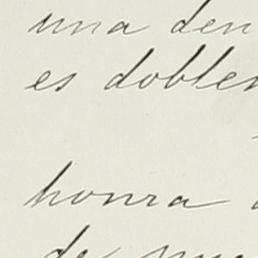 una den
es doblem
honra
de